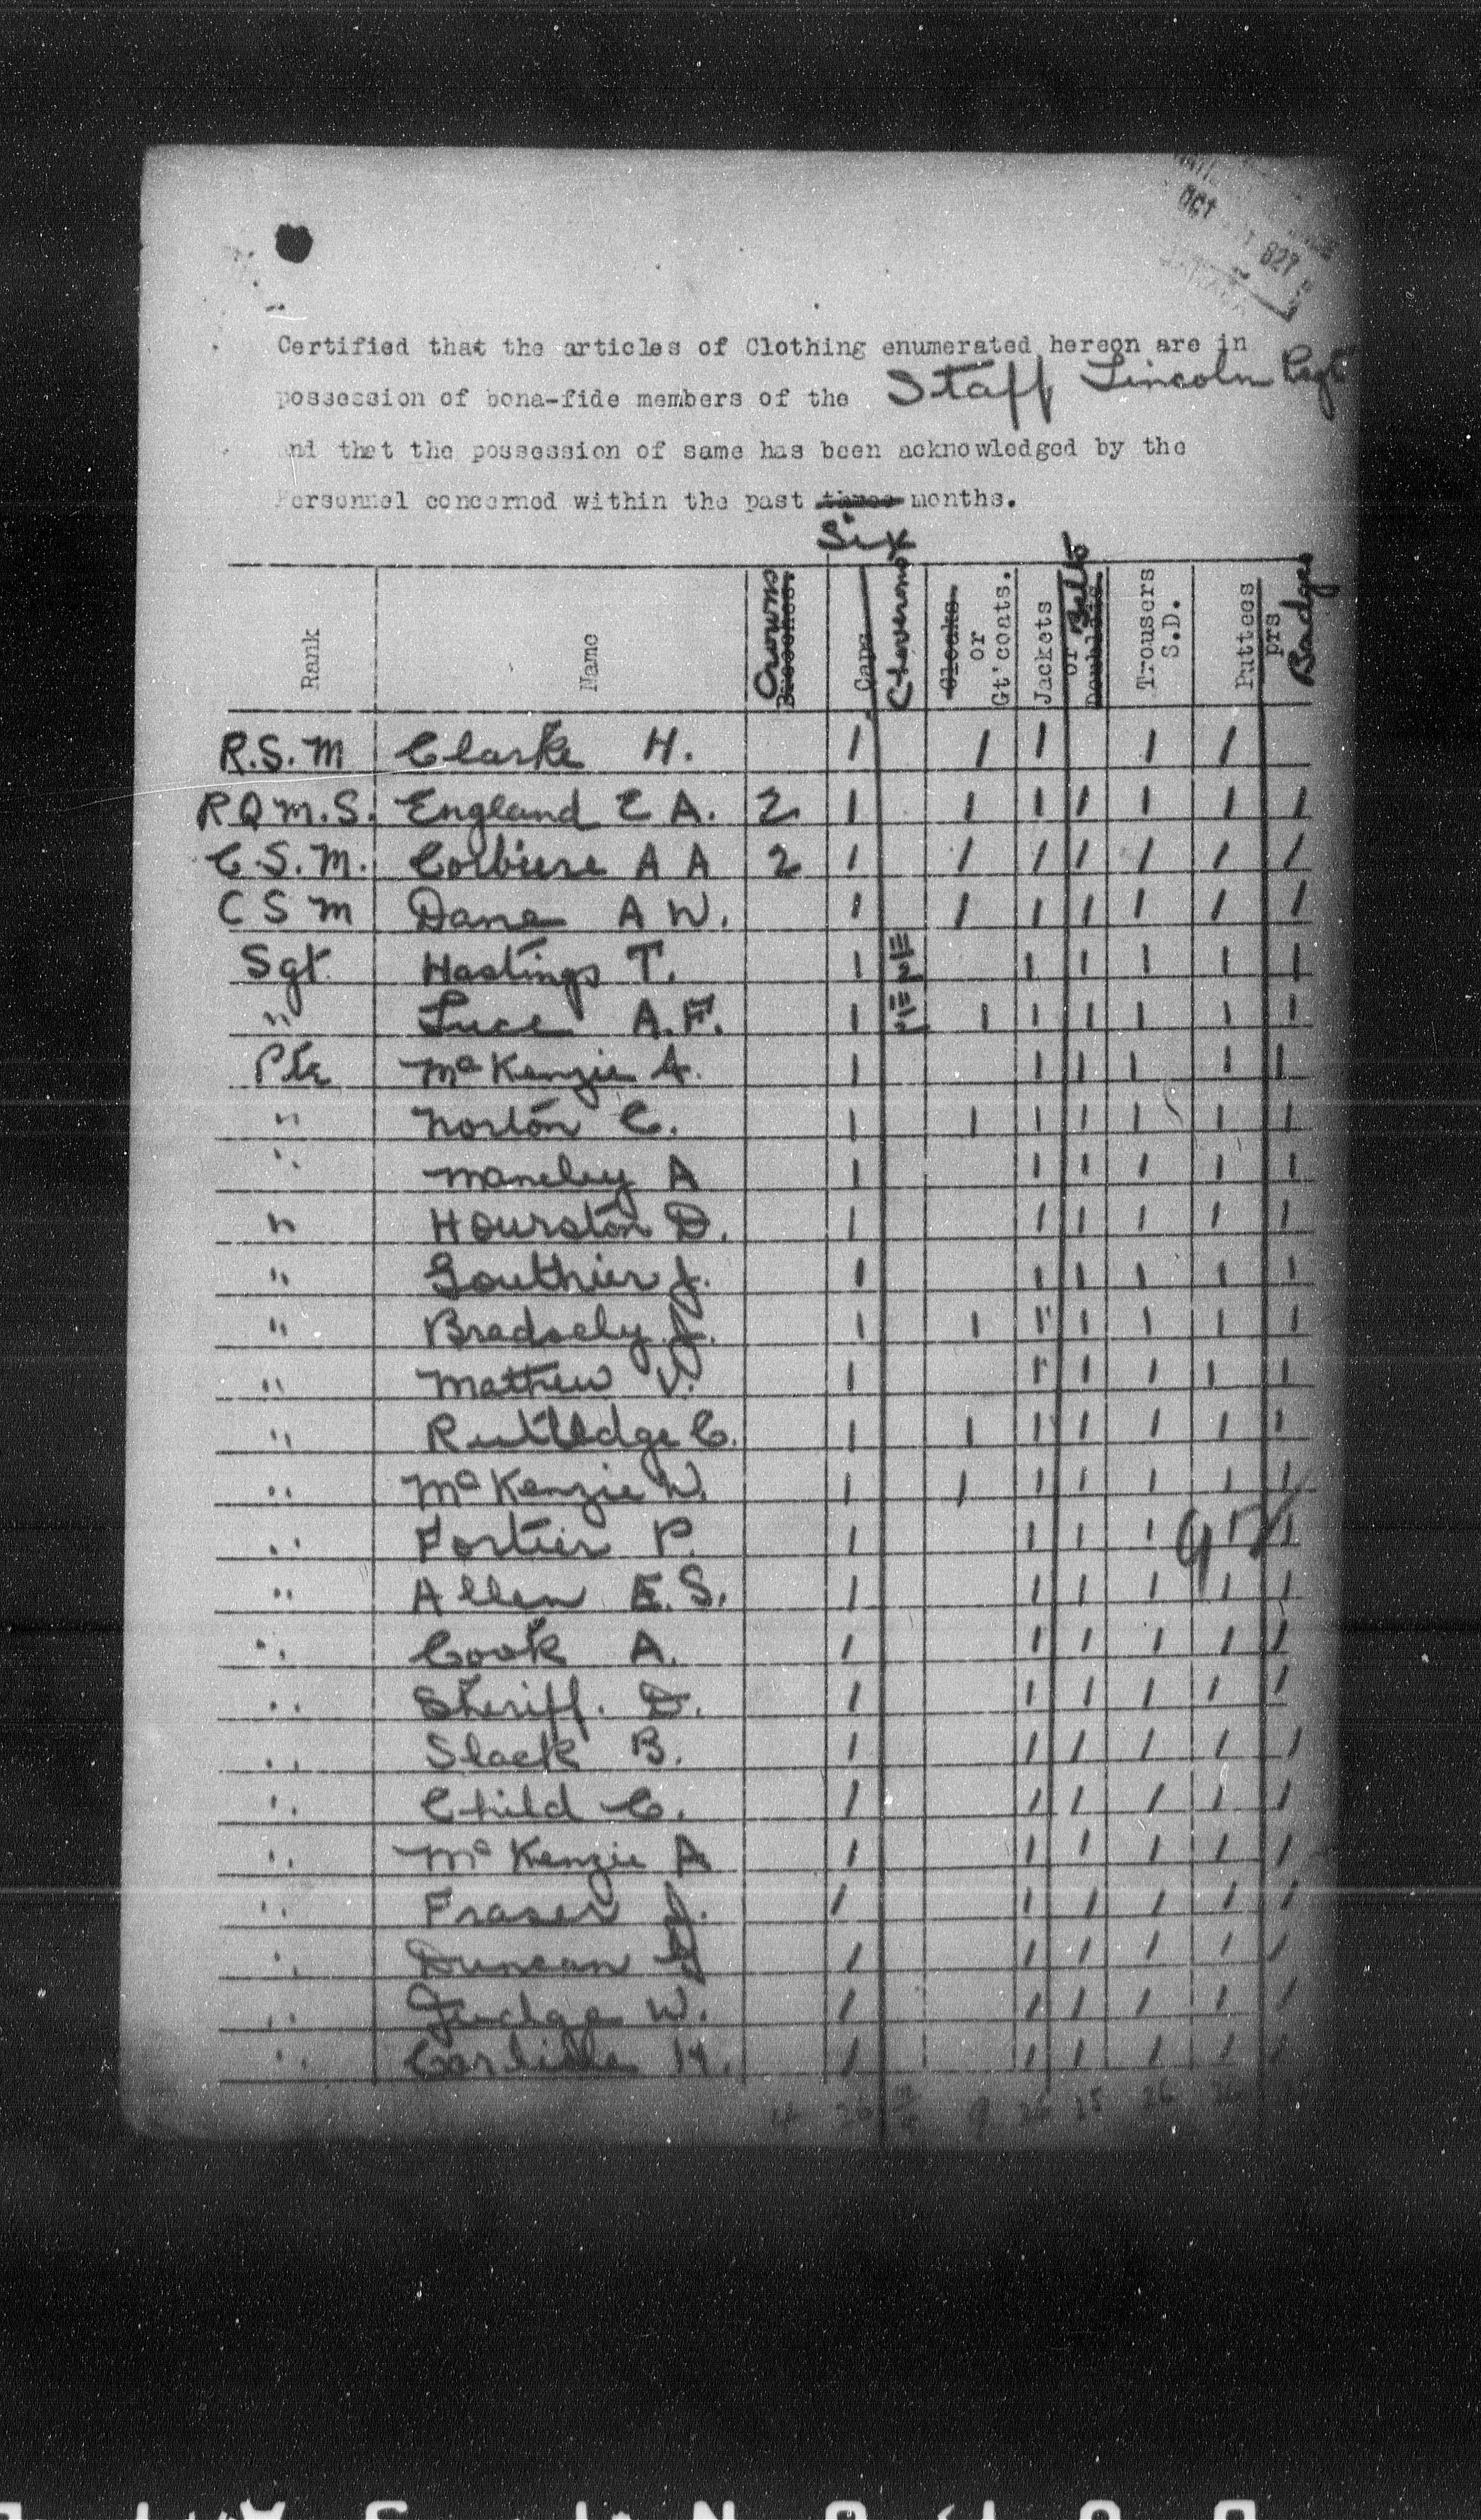 OCT
827
Certified that the articles of Clothing enumerated hereon are in
possession of bona-fide members of the Staff Lincoln Regt
nd that the possession of same has been acknowledged by the
Personnel concerned within the past three months.
Six
Rank Name Crowns Breeches. Caps Chevrons Cloaks or Gt'coats. Jackets or Doublets. Belts Trousers S.D. Puttees prs Badges
R.S.M Clarke H. 1 1 1 1 1
R Q M.S. England E A. 2 1 1 1 1 1 1 1
C.S.M. Corbiere A A 2 1 1 1 1 1 1 1
C S M Dane A W. 1 1 1 1 1 1 1
Sgt. Hastings T. 1 III/2 1 1 1 1 1
" Luce A.F. 1 III 1 1 1 1 1 1
Pte McKenzie A. 1 1 1 1 1 1
" Norton C. 1 1 1 1 1 1 1
" Maneley A 1 1 1 1 1 1
" Hourston D. 1 1 1 1 1 1
" Gouthier J. 1 1 1 1 1 1
" Bradsely J. 1 1 1 1 1 1 1
" Mathew V. 1 1 1 1 1 1
" Ruttledge C. 1 1 1 1 1 1 1
" McKenzie W. 1 1 1 1 1 1 1
" Fortier P. 1 1 1 1 1 1
" Allen E.S. 1 1 1 1 1 1
" Cook A. 1 1 1 1 1 1
" Sheriff. D. 1 1 1 1 1 1
" Slack B. 1 1 1 1 1 1
" Child C. 1 1 1 1 1 1
" McKenzie A 1 1 1 1 1 1
" Fraser J. 1 1 1 1 1 1
" Duncan G 1 1 1 1 1 1
" Judge W. 1 1 1 1 1 1
" Carlisle H. 1 1 1 1 1 1
4 26 9 26 25 26 26